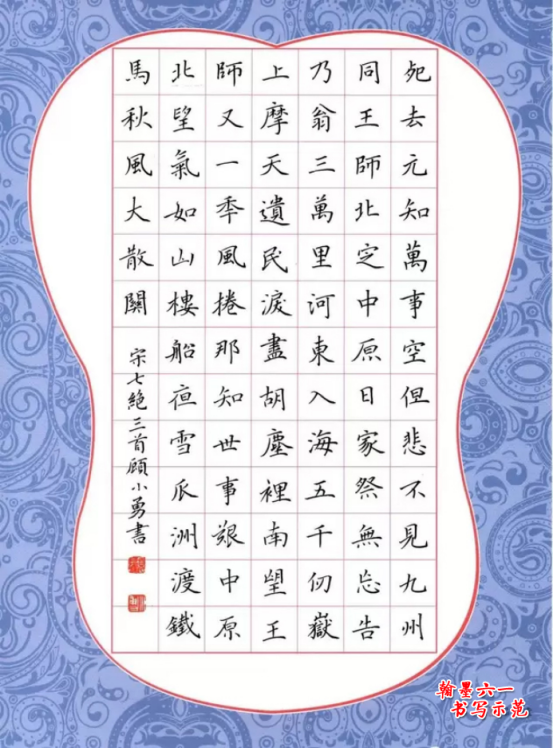 死去元知萬事空但悲不見九州
同王師北定中原日家祭無忘告
乃翁三萬里河東入海五千仞嶽
上摩天遺民淚盡胡塵裡南望王
師又一年風捲那知世事艱中原
北望氣如山樓船夜雪瓜洲渡鐵
馬秋風大散關
宋七絕三首顧小勇書
翰墨六一
书写示范